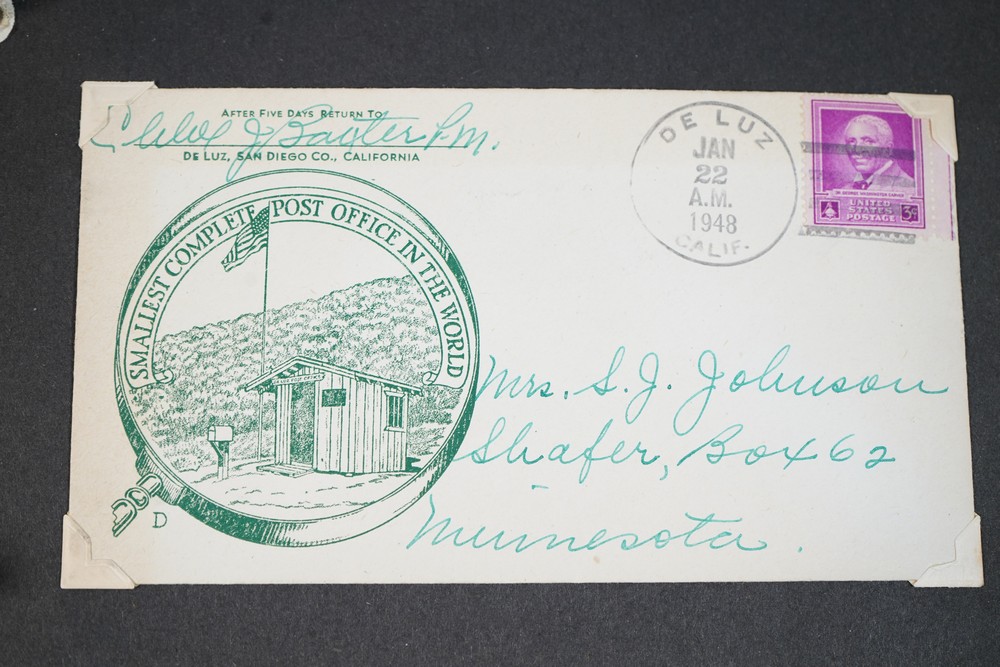 AFTER FIVE DAYS RETURN TO
J. Baxter P.M.
DE LUZ, SAN DIEGO CO., CALIFORNIA
SMALLEST COMPLETE POST OFFICE IN THE WORLD
D
DE LUZ
JAN
22
A.M.
1948
CALIF.
DR. GEORGE WASHINGTON CARVER
UNITED
STATES
POSTAGE
3¢
Mrs. S. J. Johnson
Shafer, Box 62
Minnesota.